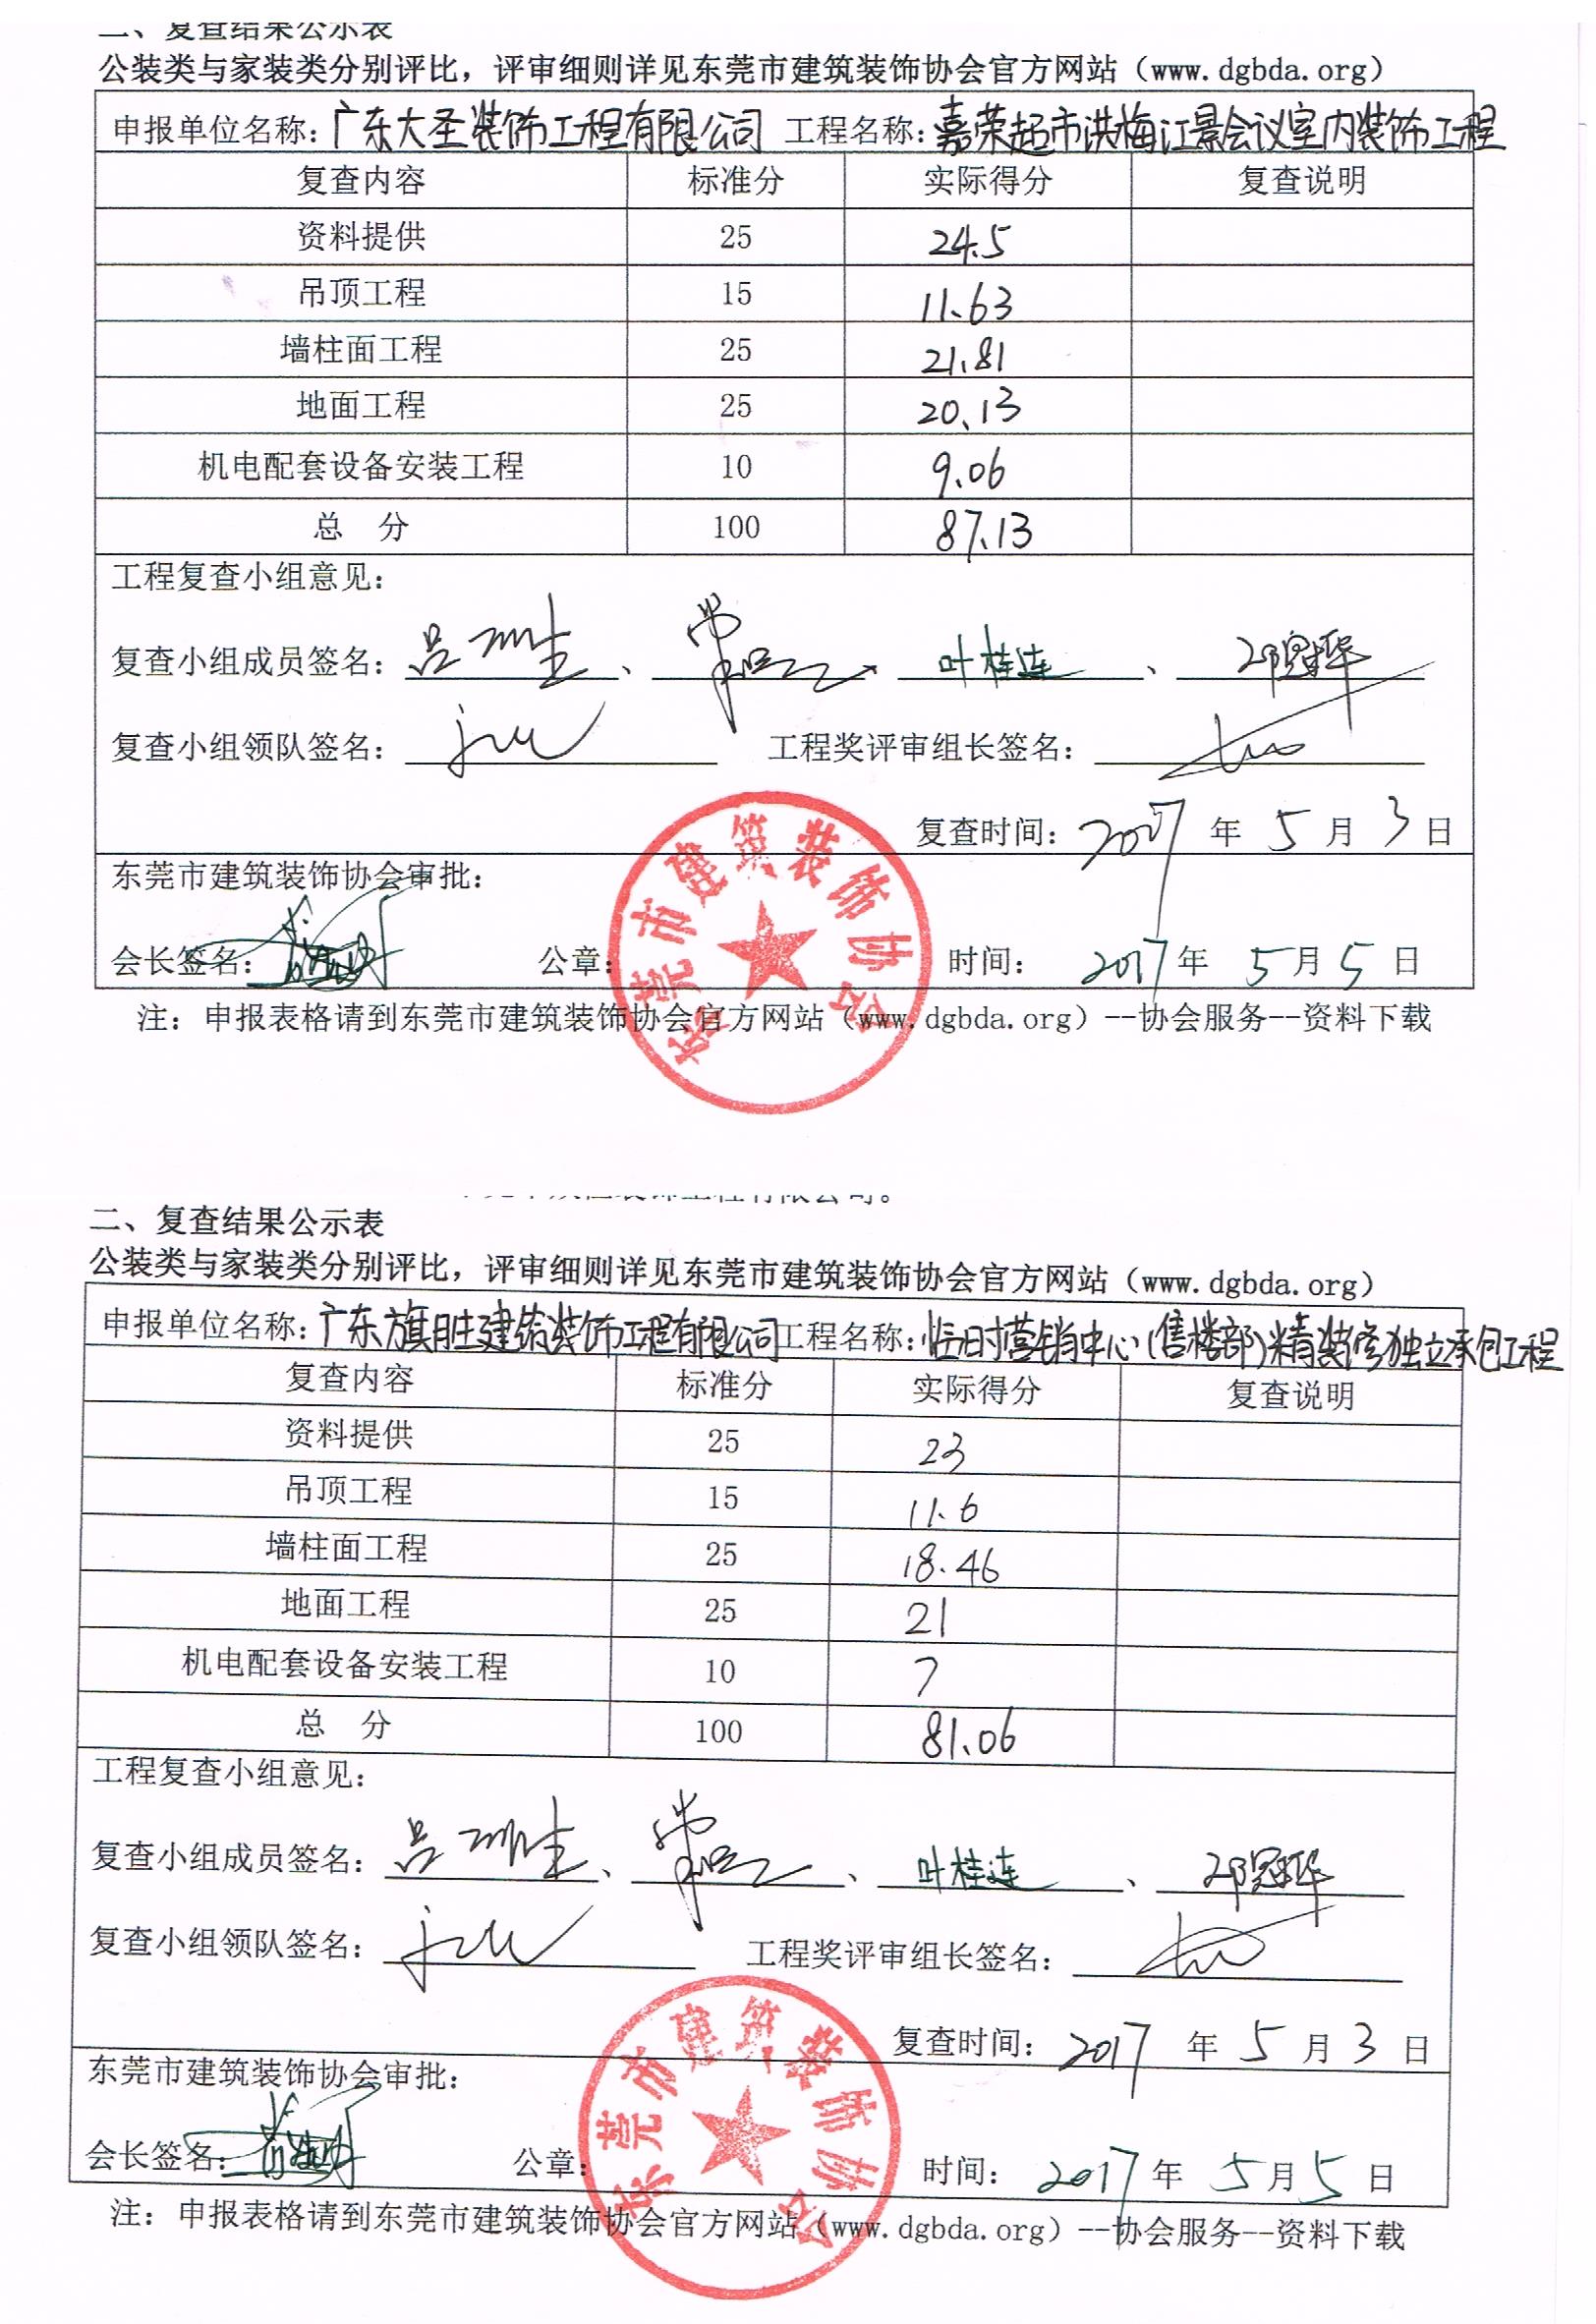 二、复查结果公示表
公装类与家装类分别评比，评审细则详见东莞市建筑装饰协会官方网站（www.dgbda.org）
申报单位名称：广东大圣装饰工程有限公司 工程名称：嘉荣超市洪梅江景会议室内装饰工程
复查内容 标准分 实际得分 复查说明
资料提供 25 24.5
吊顶工程 15 11.63
墙柱面工程 25 21.81
地面工程 25 20.13
机电配套设备安装工程 10 9.06
总 分 100 87.13
工程复查小组意见：
复查小组成员签名： 、 、叶桂连、
复查小组领队签名： 工程奖评审组长签名：
复查时间：2017年5月3日
东莞市建筑装饰协会审批：
会长签名： 公章： 时间：2017年5月5日
东莞市建筑装饰协会
注：申报表格请到东莞市建筑装饰协会官方网站（www.dgbda.org）--协会服务--资料下载
二、复查结果公示表
公装类与家装类分别评比，评审细则详见东莞市建筑装饰协会官方网站（www.dgbda.org）
申报单位名称：广东旗胜建筑装饰工程有限公司 工程名称：临时营销中心(售楼部)精装修独立承包工程
复查内容 标准分 实际得分 复查说明
资料提供 25 23
吊顶工程 15 11.6
墙柱面工程 25 18.46
地面工程 25 21
机电配套设备安装工程 10 7
总 分 100 81.06
工程复查小组意见：
复查小组成员签名： 、 、叶桂连、
复查小组领队签名： 工程奖评审组长签名：
复查时间：2017年5月3日
东莞市建筑装饰协会审批：
会长签名： 公章： 时间：2017年5月5日
东莞市建筑装饰协会
注：申报表格请到东莞市建筑装饰协会官方网站（www.dgbda.org）--协会服务--资料下载